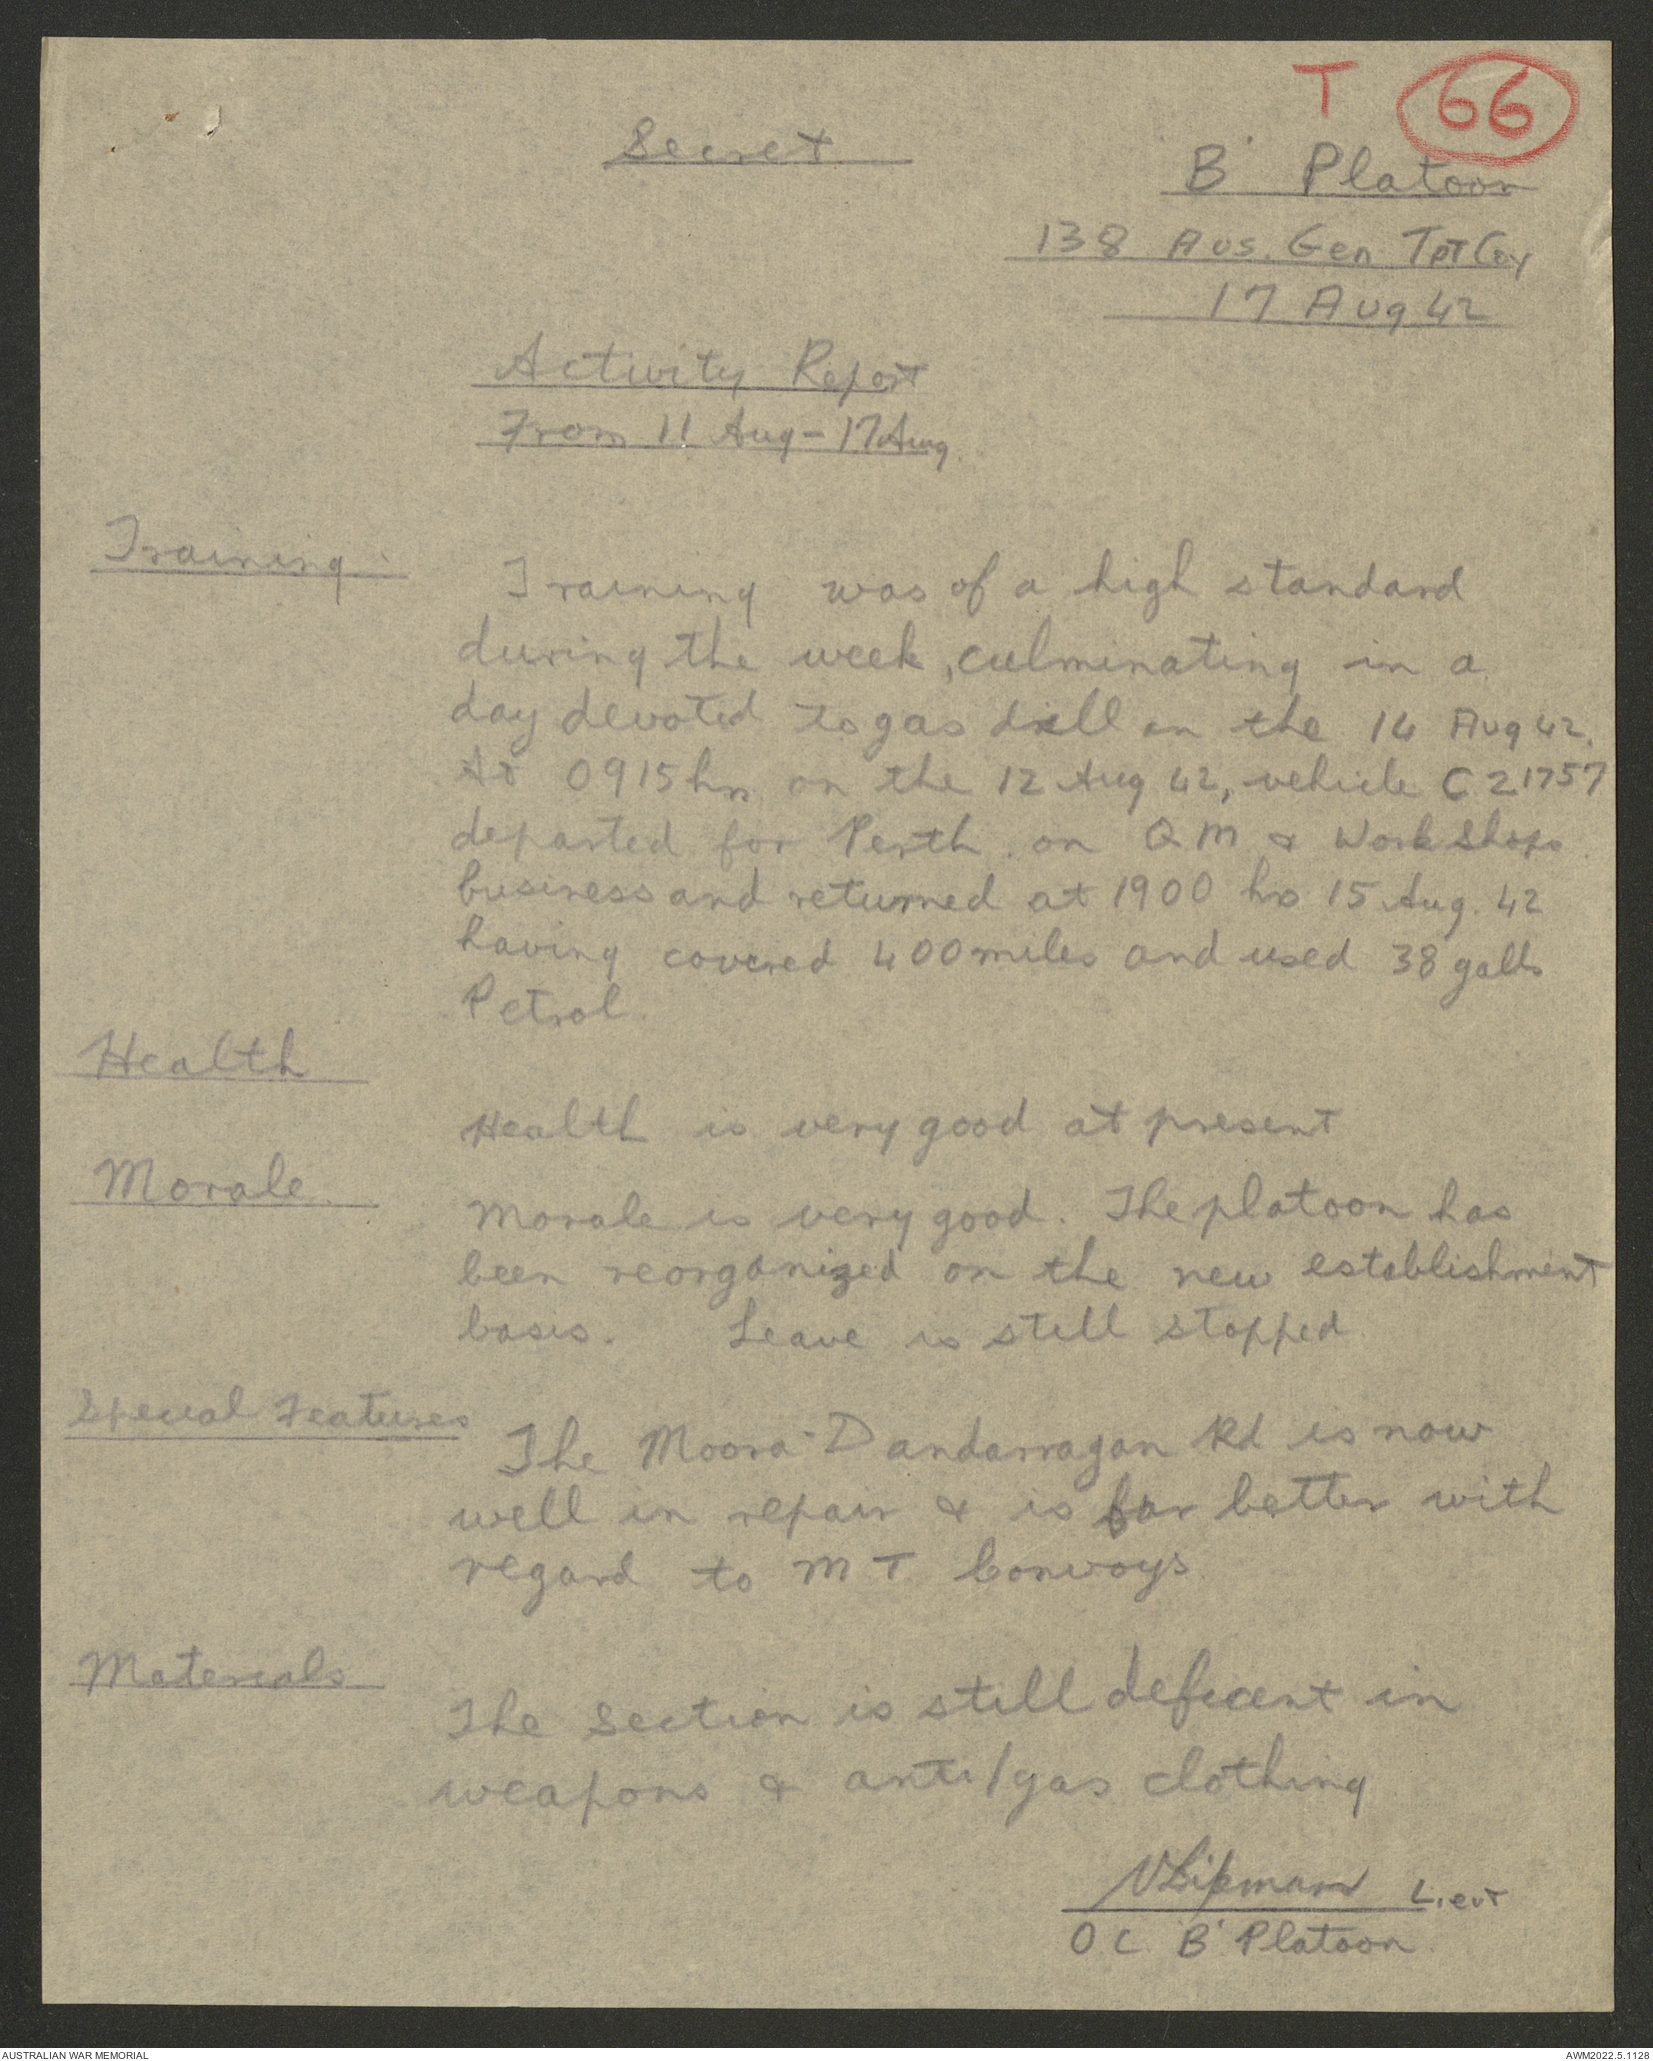 T 66
Secret
'B' Platoon
138 Aus. Gen Tpt Coy
17 Aug 42
Activity Report
From 11 Aug - 17 Aug.
Training.
Training was of a high standard
during the week, culminating in a
day devoted to gas drill on the 14 Aug 42.
At 0915 hrs on the 12 Aug 42, vehicle C 21757
departed for Perth on QM & Workshops
business and returned at 1900 hrs 15 Aug. 42
having covered 400 miles and used 38 galls
Petrol.
Health
Health is very good at present
Morale.
Morale is very good. The platoon has
been reorganized on the new establishment
basis. Leave is still stopped
Special Features
The Moora-Dandarragan Rd is now
well in repair & is far better with
regard to MT Convoys.
Materials
The Section is still deficent in
weapons & anti/gas clothing
Lipman Lieut
OC 'B' Platoon.
AUSTRALIAN WAR MEMORIAL
AWM2022.5.1128